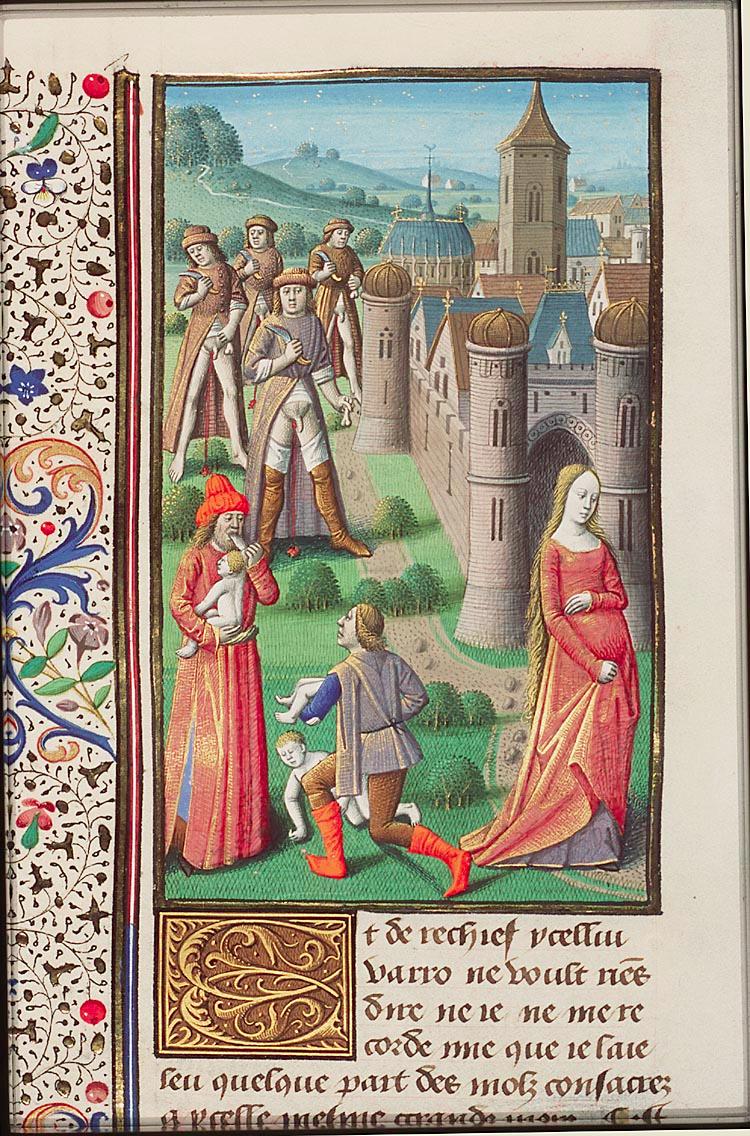 t de rechief ycellui
varro ne voult riēs
dire ne ie ne me re
corde mie que ie laie
leu quelque part des molz consacrez
a ycelle mesme grande mere